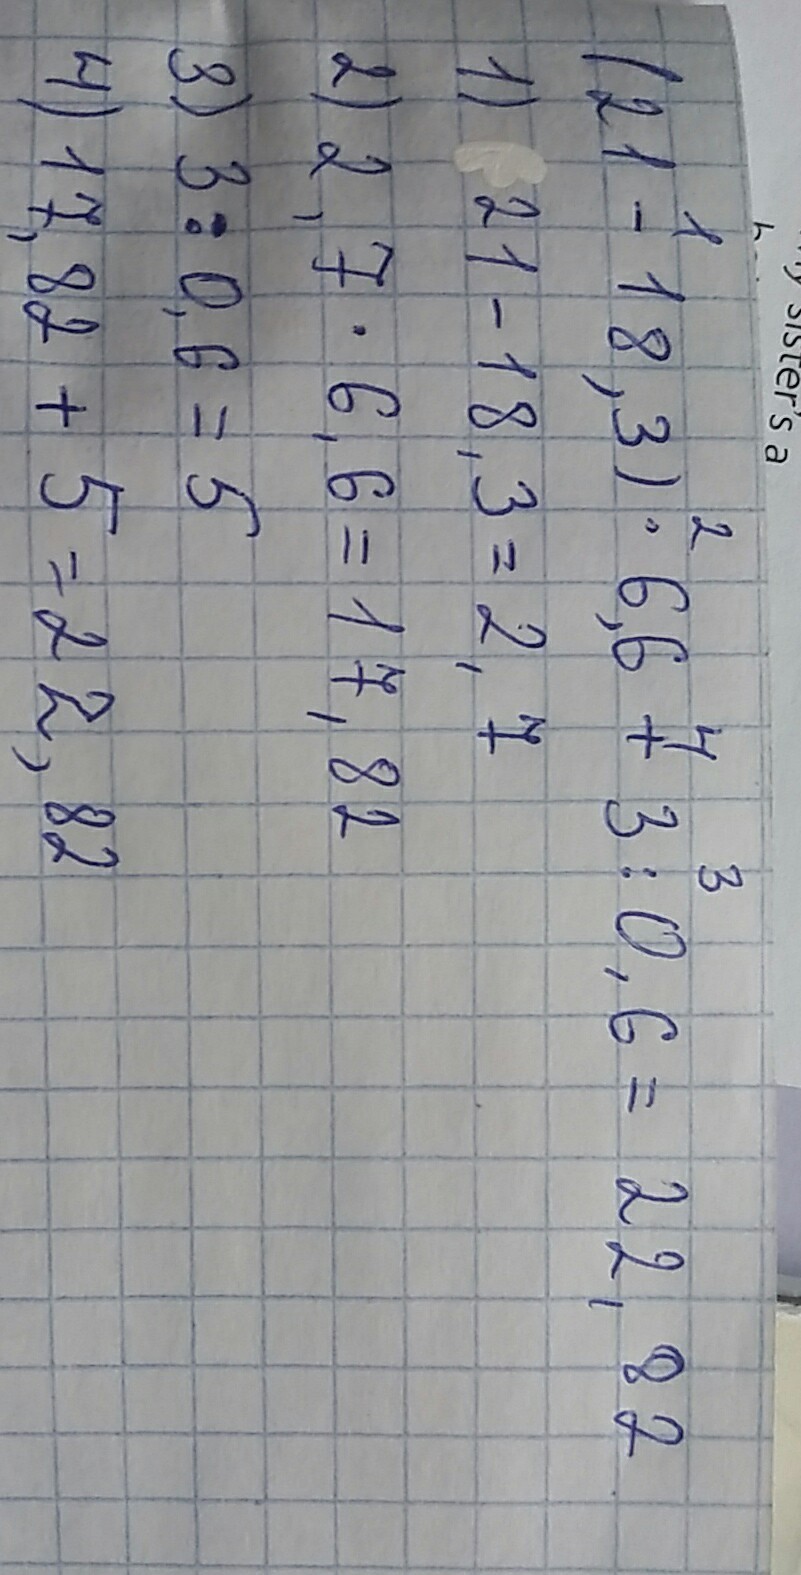 y sister's a
(21 - 18,3) · 6,6 + 3 : 0,6 = 22,82
1 2 4 3
1) 21 - 18,3 = 2,7
2) 2,7 · 6,6 = 17,82
3) 3 : 0,6 = 5
4) 17,82 + 5 = 22,82